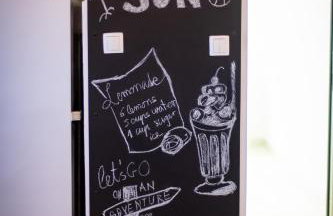 SUN
Lemonade
6 lemons
5 cups water
1 cup sugar
ice
let's GO
ON AN
ADVENTURE